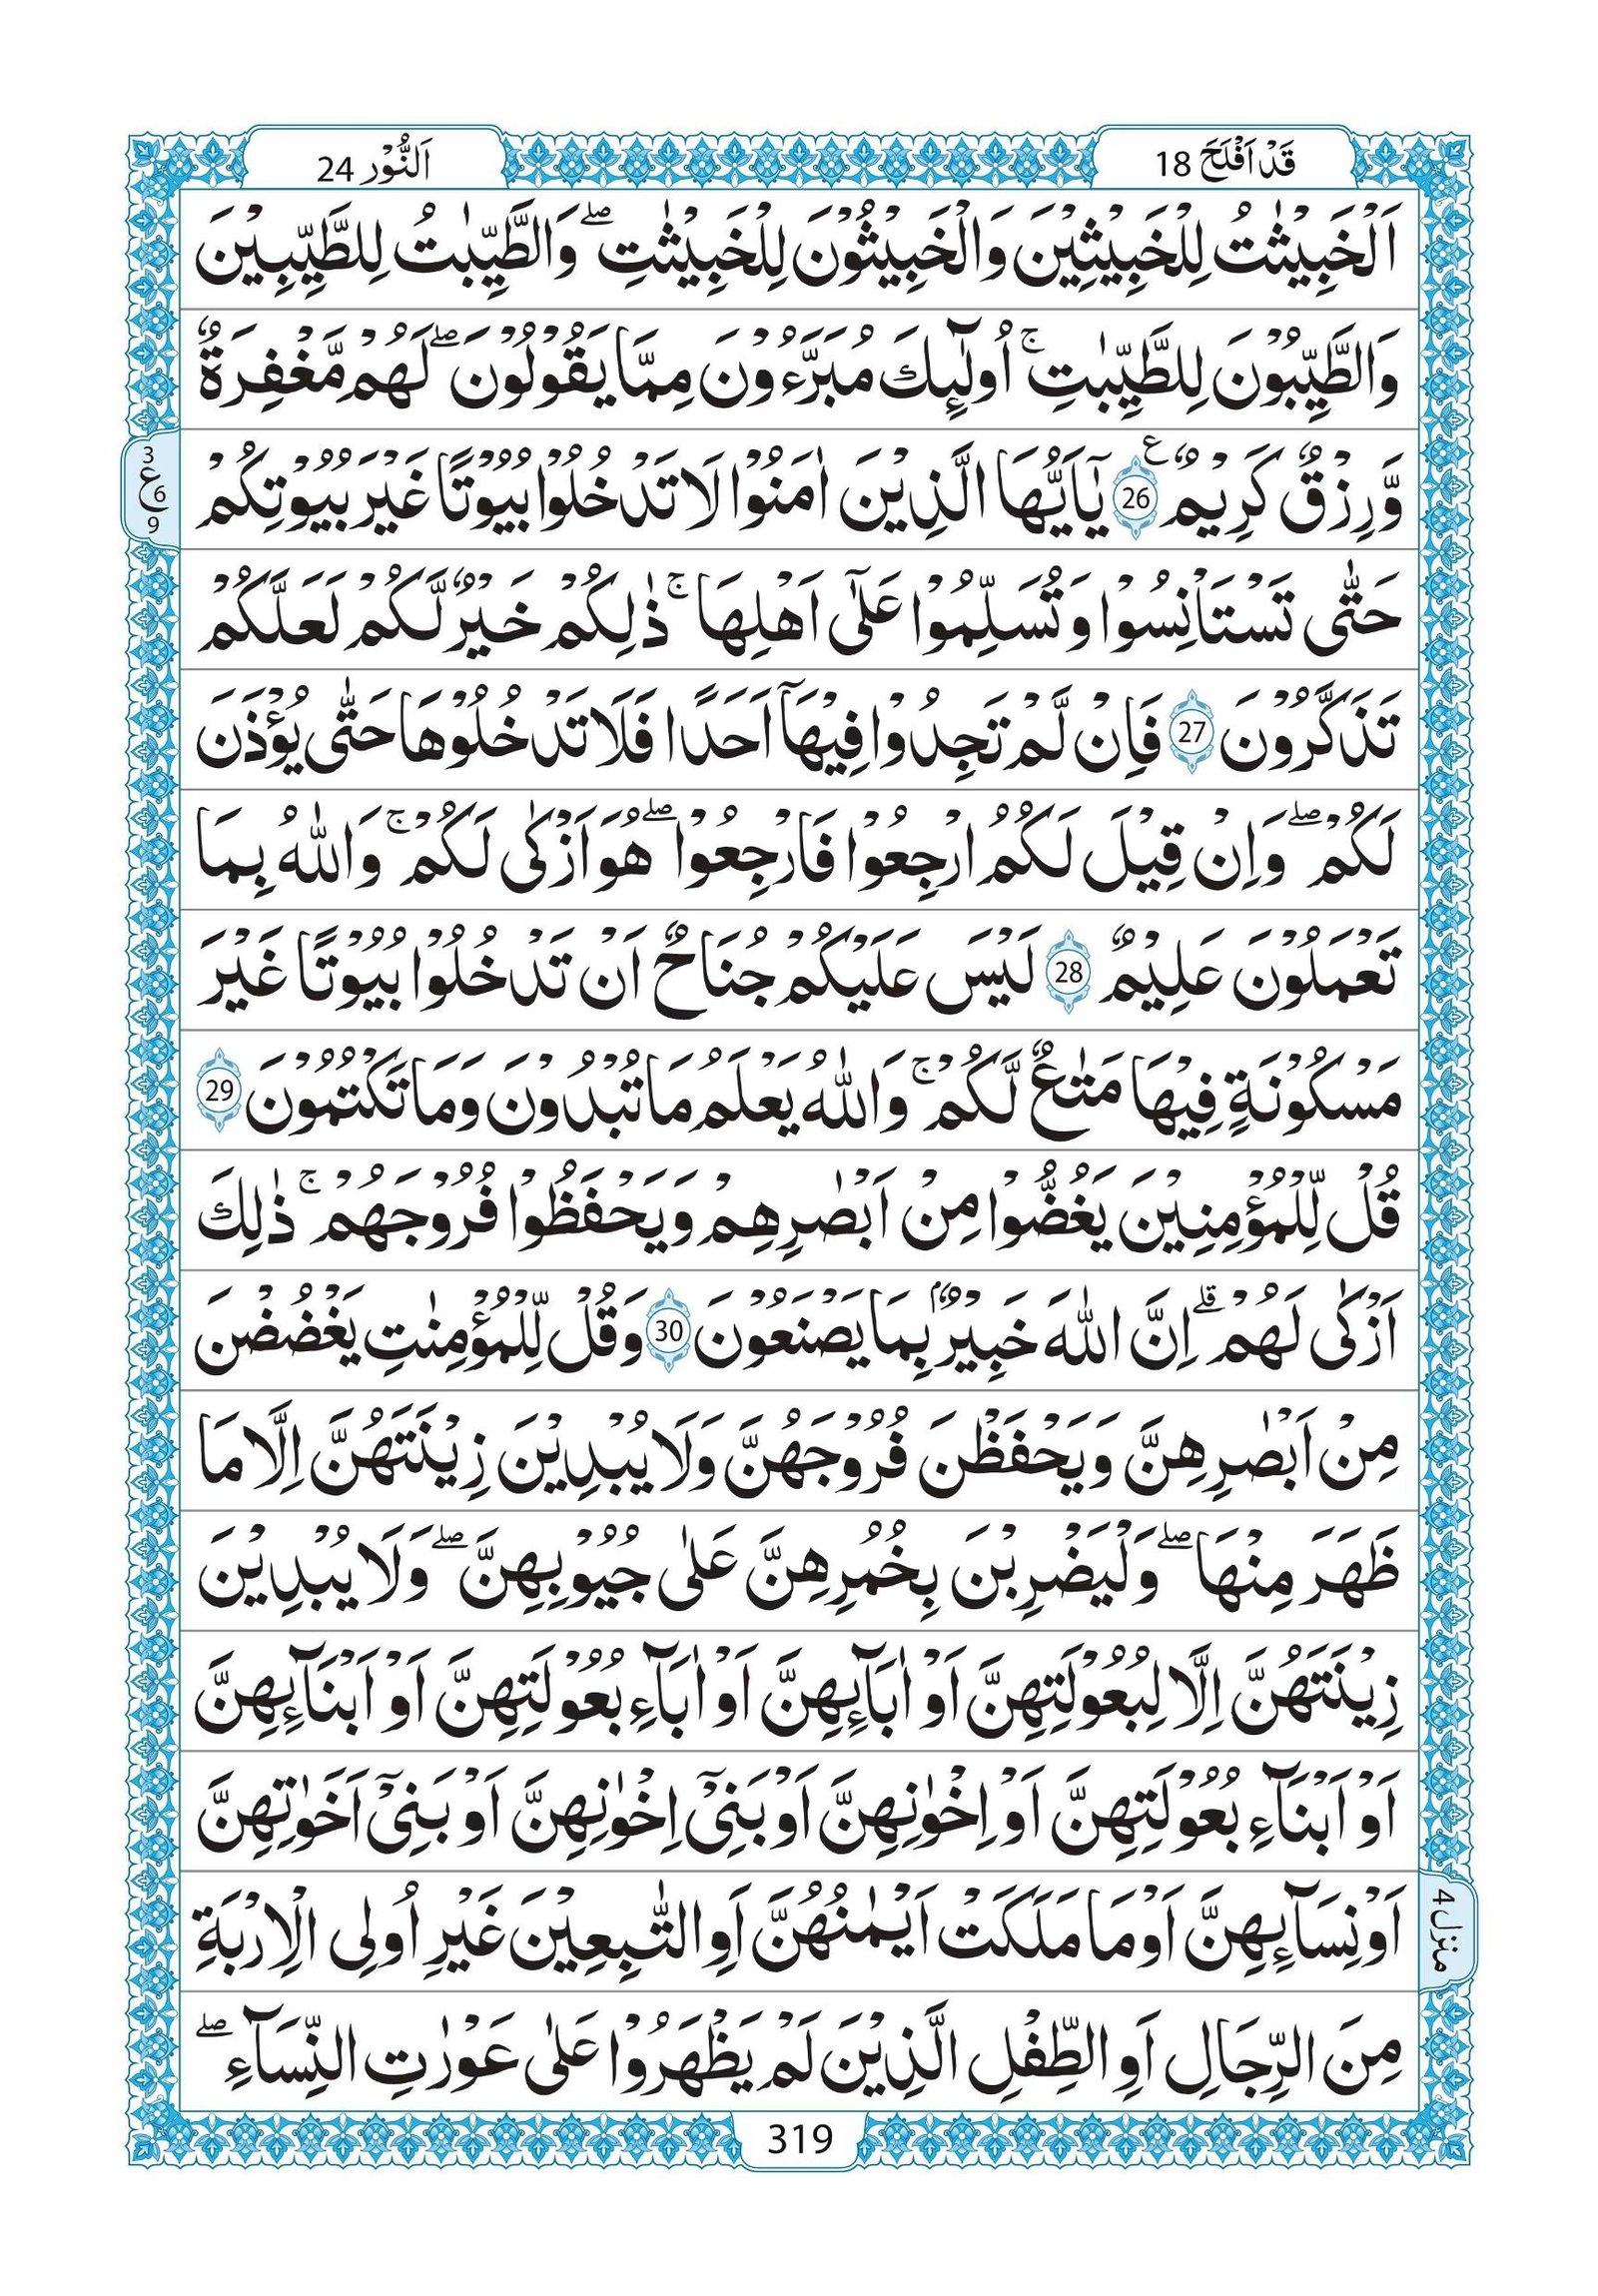 قَدْ اَفْلَحَ 18
اَلنُّوْر 24
اَلْخَبِيْثٰتُ لِلْخَبِيْثِيْنَ وَالْخَبِيْثُوْنَ لِلْخَبِيْثٰتِ ۖ وَالطَّيِّبٰتُ لِلطَّيِّبِيْنَ
وَالطَّيِّبُوْنَ لِلطَّيِّبٰتِ ۚ اُولٰٓئِكَ مُبَرَّءُوْنَ مِمَّا يَقُوْلُوْنَ ۖ لَهُمْ مَّغْفِرَةٌ
وَّرِزْقٌ كَرِيْمٌ ع 26 يٰٓاَيُّهَا الَّذِيْنَ اٰمَنُوْا لَا تَدْخُلُوْا بُيُوْتًا غَيْرَ بُيُوْتِكُمْ
3 ع 6 9
حَتّٰى تَسْتَاْنِسُوْا وَتُسَلِّمُوْا عَلٰٓى اَهْلِهَا ۚ ذٰلِكُمْ خَيْرٌ لَّكُمْ لَعَلَّكُمْ
تَذَكَّرُوْنَ 27 فَاِنْ لَّمْ تَجِدُوْا فِيْهَآ اَحَدًا فَلَا تَدْخُلُوْهَا حَتّٰى يُؤْذَنَ
لَكُمْ ۖ وَاِنْ قِيْلَ لَكُمُ ارْجِعُوْا فَارْجِعُوْا ۖ هُوَ اَزْكٰى لَكُمْ ۚ وَاللّٰهُ بِمَا
تَعْمَلُوْنَ عَلِيْمٌ 28 لَيْسَ عَلَيْكُمْ جُنَاحٌ اَنْ تَدْخُلُوْا بُيُوْتًا غَيْرَ
مَسْكُوْنَةٍ فِيْهَا مَتٰعٌ لَّكُمْ ۚ وَاللّٰهُ يَعْلَمُ مَا تُبْدُوْنَ وَمَا تَكْتُمُوْنَ 29
قُلْ لِّلْمُؤْمِنِيْنَ يَغُضُّوْا مِنْ اَبْصٰرِهِمْ وَيَحْفَظُوْا فُرُوْجَهُمْ ۚ ذٰلِكَ
اَزْكٰى لَهُمْ ۗ اِنَّ اللّٰهَ خَبِيْرٌۢ بِمَا يَصْنَعُوْنَ 30 وَقُلْ لِّلْمُؤْمِنٰتِ يَغْضُضْنَ
مِنْ اَبْصٰرِهِنَّ وَيَحْفَظْنَ فُرُوْجَهُنَّ وَلَا يُبْدِيْنَ زِيْنَتَهُنَّ اِلَّا مَا
ظَهَرَ مِنْهَا ۖ وَلْيَضْرِبْنَ بِخُمُرِهِنَّ عَلٰى جُيُوْبِهِنَّ ۖ وَلَا يُبْدِيْنَ
زِيْنَتَهُنَّ اِلَّا لِبُعُوْلَتِهِنَّ اَوْ اٰبَآئِهِنَّ اَوْ اٰبَآءِ بُعُوْلَتِهِنَّ اَوْ اَبْنَآئِهِنَّ
اَوْ اَبْنَآءِ بُعُوْلَتِهِنَّ اَوْ اِخْوٰنِهِنَّ اَوْ بَنِىْٓ اِخْوٰنِهِنَّ اَوْ بَنِىْٓ اَخَوٰتِهِنَّ
اَوْ نِسَآئِهِنَّ اَوْ مَا مَلَكَتْ اَيْمٰنُهُنَّ اَوِ التّٰبِعِيْنَ غَيْرِ اُولِى الْاِرْبَةِ
منزل 4
مِنَ الرِّجَالِ اَوِ الطِّفْلِ الَّذِيْنَ لَمْ يَظْهَرُوْا عَلٰى عَوْرٰتِ النِّسَآءِ ۖ
319